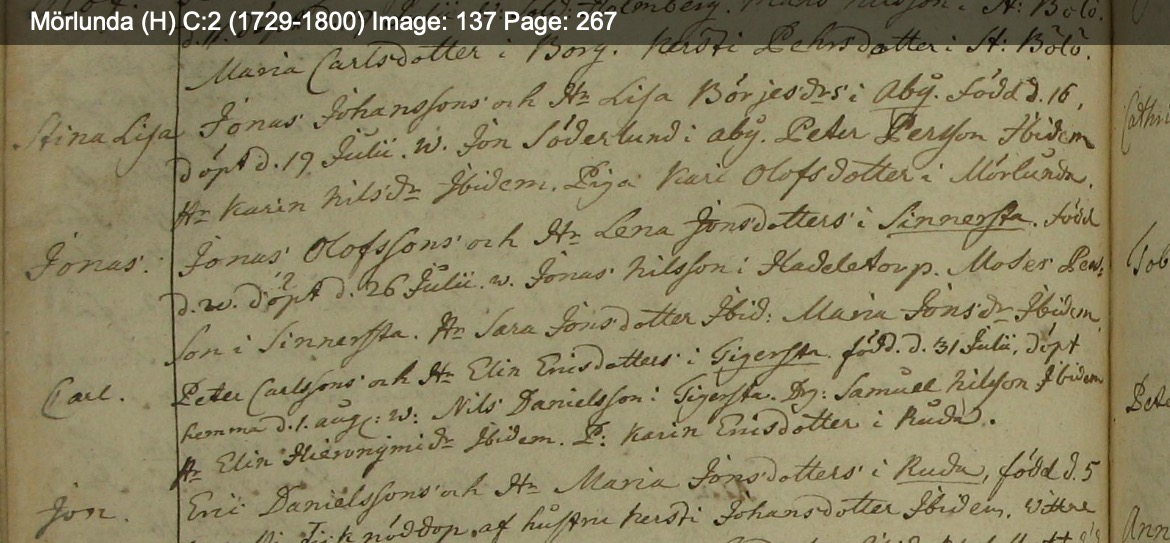 Mörlunda (H) C:2 (1729-1800) Image: 137 Page: 267
Maria Carlsdotter i Borg. Kersti Pehrsdotter i St: Bölö.
Stina Lisa Jonas Johanssons och Hr Lisa Börjesdrs i Aby. Född d. 16,
döpt d. 19 Julii. w. Jon Söderlund i aby. Peter Persson Ibidem
Hr Karin Nilsdr Ibidem. Piga Kari Olofsdotter i Mörlunda.
Jonas: Jonas Olofssons och Hr Lena Jonsdotters i Sinnersta. Född
döpt d. 26 Julii. w. Jonas Nilsson i Hadeletorp. Moses Pers
son i Sinnersta. Hr Sara Jonsdotter Ibid: Maria Jonsdr Ibidem.
Carl. Peter Carlssons och Hr Elin Ericsdotters i Tigersta. född. d. 31 Julii, döpt
hemma d. 1. aug: w: Nils Danielsson i Tigersta. Dr: Samuel Nilsson Ibidem
Hr Elin Hieronymidr Ibidem. P: Karin Ericsdotter i Ruda.
Jon. Eric Danielssons och Hr Maria Jonsdotters i Ruda, född d. 5
nöddop af hustru Kersti Johansdotter Ibidem. Vittne